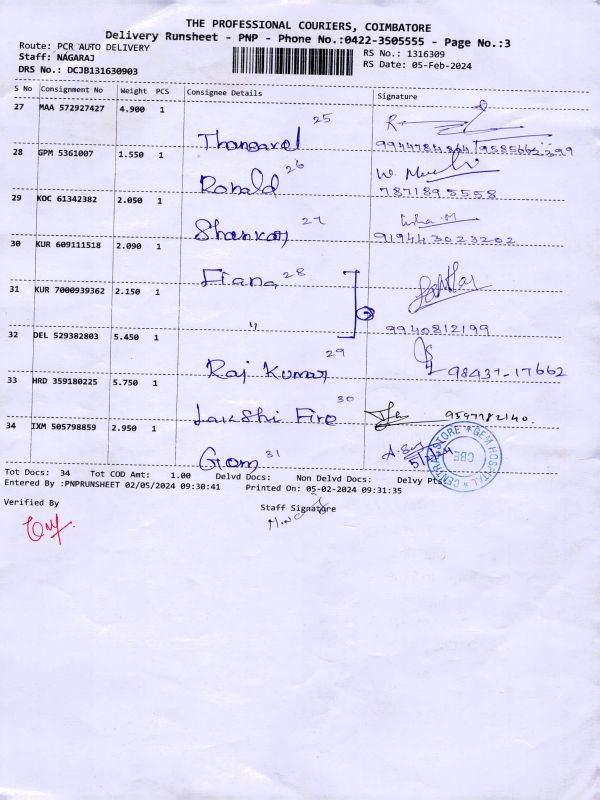 THE PROFESSIONAL COURIERS, COIMBATORE
Delivery Runsheet - PNP - Phone No.:0422-3505555 - Page No.:3
Route: PCR AUTO DELIVERY
Staff: NAGARAJ
DRS No.: DCJB131630903
RS No.: 1316309
RS Date: 05-Feb-2024
S No Consignment No Weight PCS Consignee Details Signature
27 MAA 572927427 4.900 1 Thangavel 25
28 GPM 5361007 1.550 1 Ronald 26
7871895558
29 KOC 61342382 2.050 1 Shankar 27
919443023202
30 KUR 609111518 2.090 1 Fiana 28
31 KUR 7000939362 2.150 1 "
9940812199
32 DEL 529382803 5.450 1 Raj Kumar 29
98437-17662
33 HRD 359180225 5.750 1 Lakshi Fire 30
9597782140.
34 IXM 505798859 2.950 1 Gem 31
CENTRAL STORE * GEM HOSPITAL *
CBE
Tot Docs: 34 Tot COD Amt: 1.00 Delvd Docs: Non Delvd Docs: Delvy Pts
Entered By :PNPRUNSHEET 02/05/2024 09:30:41 Printed On: 05-02-2024 09:31:35
Verified By
Staff Signature